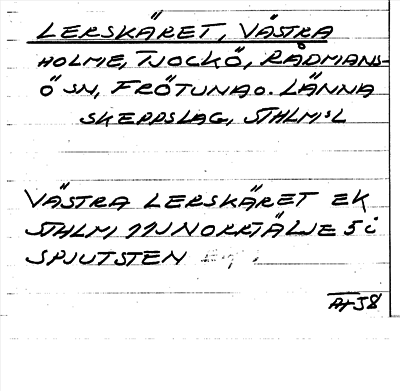 LERSKÄRET, VÄSTRA
HOLME, TJOCKÖ, RÅDMANS-
Ö SN, FRÖTUNA O. LÄNNA
SKEPPSLAG, STHLM:S L
VÄSTRA LERSKÄRET EK
STHLM 11J NORRTÄLJE 5 i
SPJUTSTEN